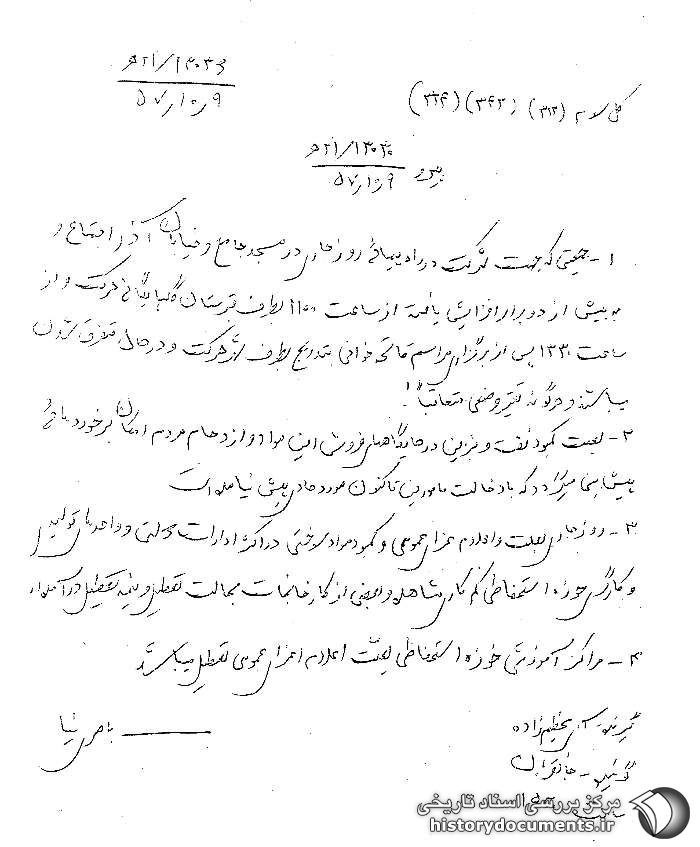 ۲۱/۱۳۰۳۶ﻫ
۵۷٫۱۰٫۹
کلی سوم (۳۱۲) (۳۴۲) (۳۲۴)
پیرو ۲۱/۱۳۰۳۰ﻫ
۵۷٫۱۰٫۹
۱- جمعیتی که جهت شرکت در راه پیمائی روز جاری در مسجد جامع و خیابان آذر اجتماع و
به بیش از دو برابر افزایش یافته از ساعت ۱۱۰۰ بطرف قبرستان گلپایگانی حرکت و از
ساعت ۱۳۳۰ پس از برگزاری مراسم فاتحه خوانی بتدریج بطرف شهر حرکت و در حال متفرق شدن
میباشند و هرگونه تغییر وضعی متعاقباً!
۲- بعلت کمبود نفت و بنزین در جایگاههای فروش این مواد و ازدحام مردم امکان برخوردهائی
پیش بینی میگردد که با دخالت مأمورین تاکنون مورد حادی پیش نیامده است
۳- روز جاری بعلت اعلام عزای عمومی و کمبود مواد سوختی در اکثر ادارات دولتی و واحدهای تولیدی
و کارگری حوزه استحفاظی کم کاری مشاهده و بعضی از کارخانجات بحالت تعطیل و نیمه تعطیل درآمده اند
۴- مراکز آموزشی حوزه استحفاظی بعلت اعلام عزای عمومی تعطیل میباشد
گیرنده- عظیم زاده
گوینده-
ساعت
مرکز بررسی اسناد تاریخی
historydocuments.ir